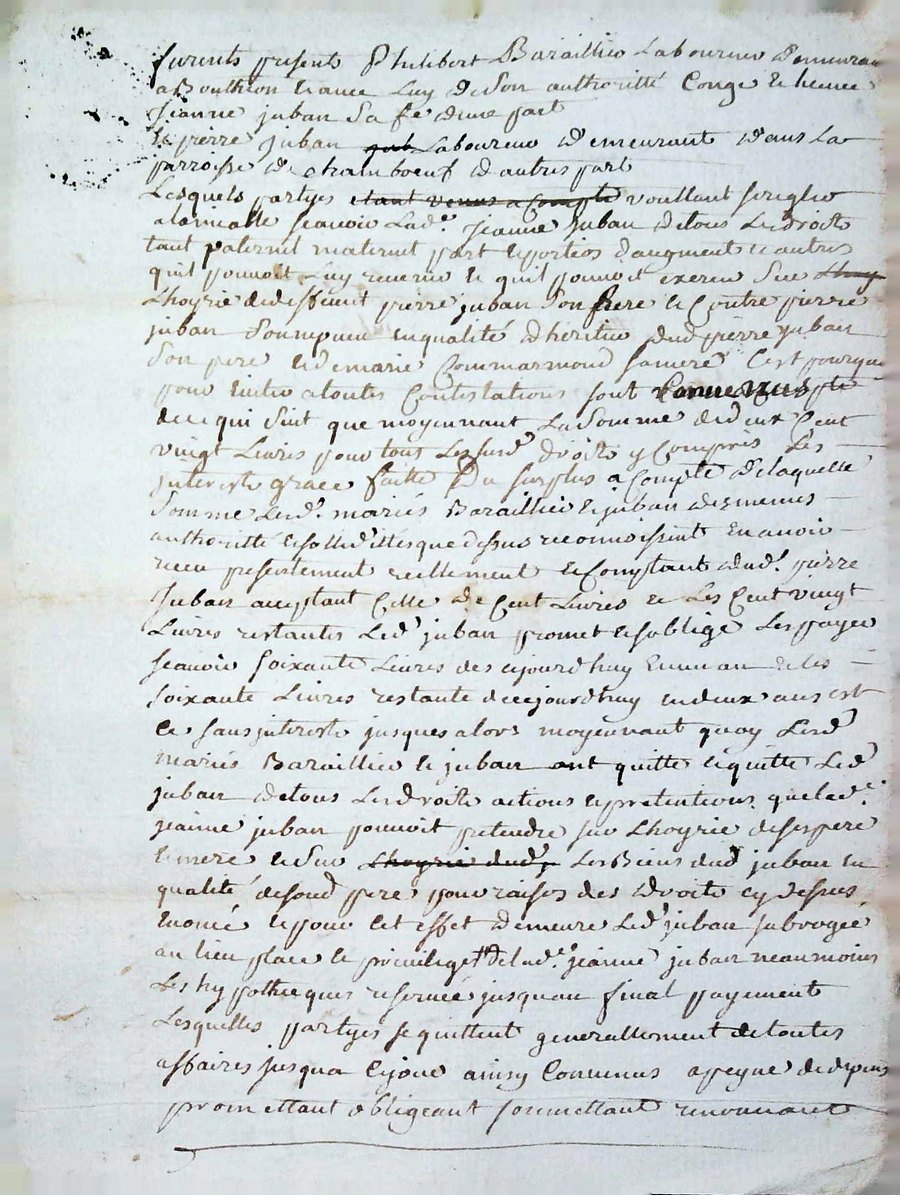 furents present Philibert Baraillier Laboureur demeuran
a Bouthion et avec Luy de son authoritté Congé et licence
Jeanne juban sa fe d'une part
Et pierre juban Laboureur demeurant dans La
parroisse de chambœuf d'autres part
Lesquels partyes etant venus a Compte voullant se regler
alamiable scavoir Lade Jeanne Juban de tous Les droits
tant paternel maternel part et portion d'augment et autres
quil pouvoit Luy revenir et quil pouvoit exercer sur
Lhoyrie de deffunt pierre juban son frere et Contre pierre
juban son nepveu en qualité dheritier dud pierre juban
son pere et de marie Commarmond sa mere Cest pourquoy
pour eviter a toutes Contestations sont Convenus
de ce qui suit que moyennant La somme de deux Cent
vingt Livres pour tous Les susd droits y Compris Les
interests grace faitte du surplus a Compte de laquelle
somme Lesd. mariés Baraillier et juban de mesmes
authoritté et sollidittés que dessus reconnoissent en avoir
receu presentement reellement et Comptant dud. pierre
Juban acceptant Celle de Cent Livres et Les Cent vingt
Livres restantes Led juban promet et soblige Les payer
scavoir soixante Livres des cejourdhuy en un an et les
soixante Livres restante de cejourdhuy en deux ans est
ce sans interests jusques alors moyennant quoy Lesd
mariés Baraillier et juban ont quitté et quitte Led
juban de tous Les droits actions et pretentions que lade
jeanne juban pouvoit pretendre sur Lhoyrie de ses pere
et mere et sur Lhoyrie dud j Les Biens dud juban en
qualité de sond pere pour raison des droits cy dessus
enoncé et pour Cet effet demeure Led juban subrogée
au lieu place et privilege de lade jeanne juban neanmoins
Les hypotheques reservée jusquau final payement
Lesquelles partyes se quittent generallement de toutes
affaires jusqua Cejour ainsy Convenus a peyne de depens
promettant obligeant soumettant renonceant